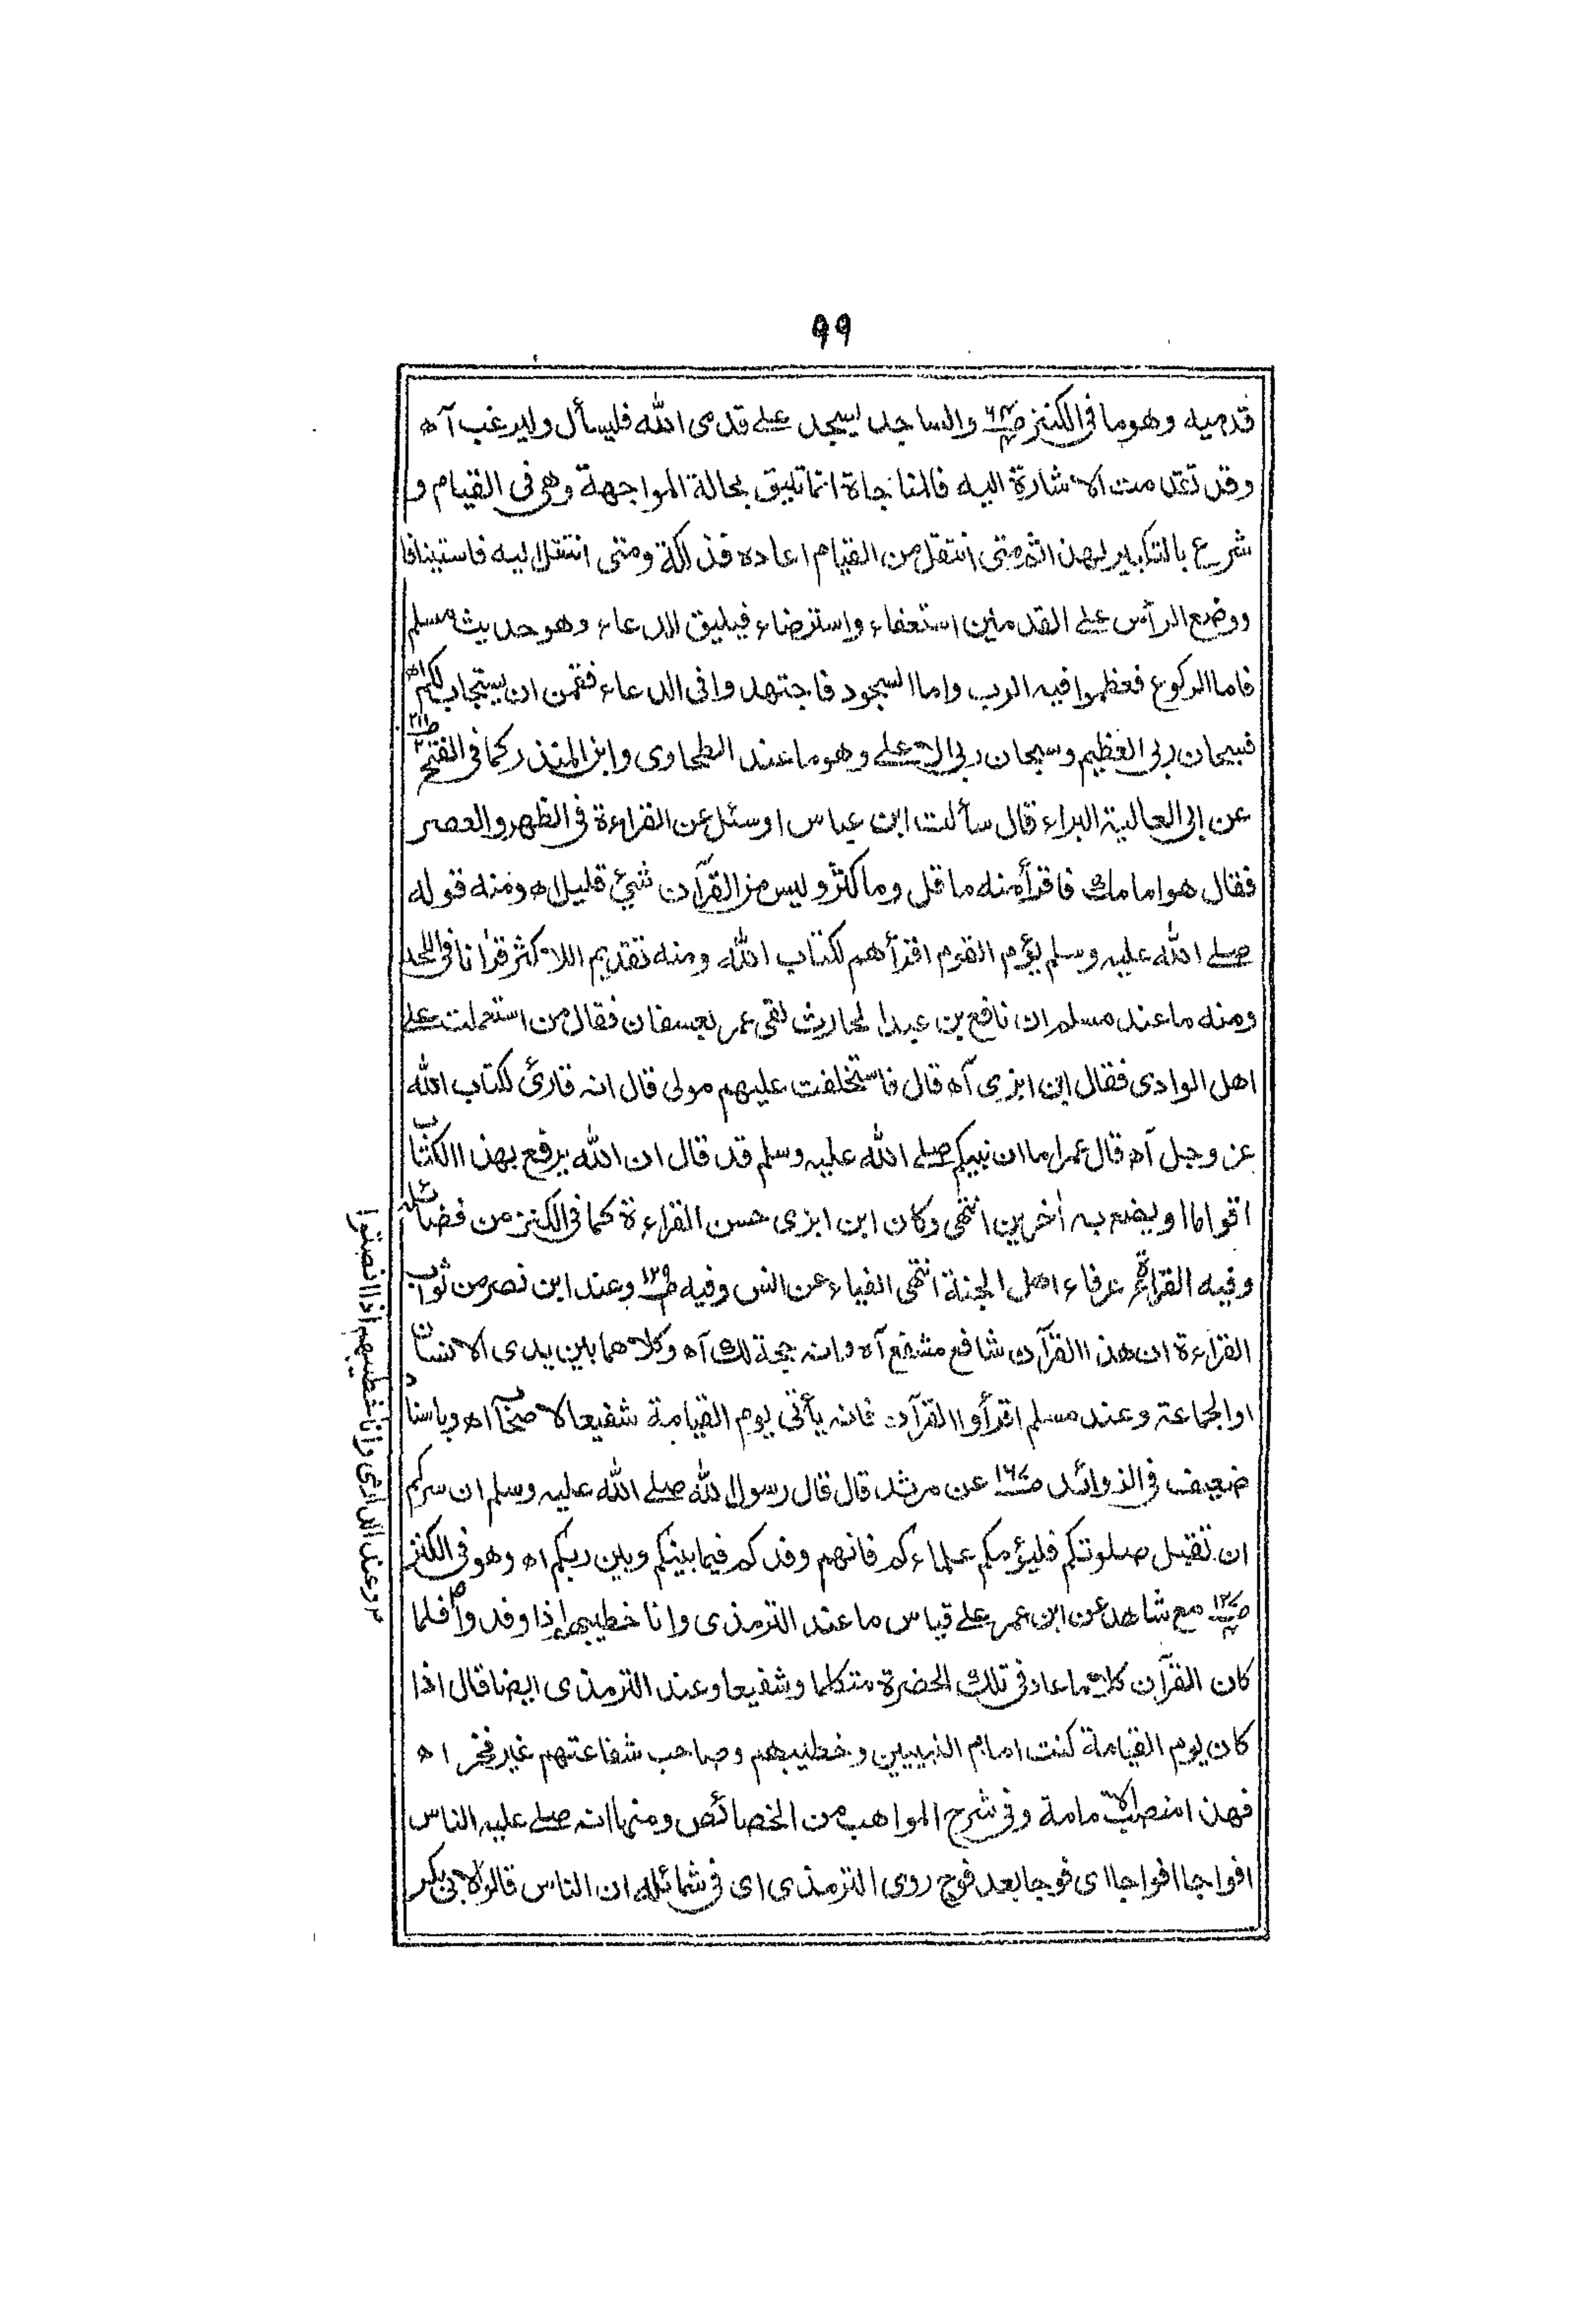 ۹۹
قدميه وهو ما فى الكنز والساجد يسجد على قدمى الله فليسأل وليرغب آه
وقد تقدمت الاشارة اليه فالمناجاة انما تليق بحالة المواجهة وهى فى القيام و
شرع بالتكبير لهذا ثم متى انتقل من القيام اعاده فذلكة ومتى انتقل اليه فاستينافا
ووضع الرأس على القدمين استعفاء واسترضاء فيليق الدعاء وهو حديث مسلم
فاما الركوع فعظموا فيه الرب واما السجود فاجتهدوا فى الدعاء فقمن ان يستجاب لكم اه
فسبحان ربى العظيم وسبحان ربى الاعلى وهو ما عند الطحاوى وابن المنذر كما فى الفتح ص۲۱۱
عن ابى العالية البراء قال سألت ابن عباس او سئل عن القراءة فى الظهر والعصر
فقال هو امامك فاقرأ منه ما قل وما كثر وليس من القرآن شىء قليل اه ومنه قوله
صلى الله عليه وسلم يؤم القوم اقرأهم لكتاب الله ومنه تقديم الاكثر قرانا فى اللحد
ومنه ما عند مسلم ان نافع بن عبد الحارث لقى عمر بعسفان فقال من استعملت على
اهل الوادى فقال ابن ابزى آه قال فاستخلفت عليهم مولى قال انه قارئ لكتاب الله
عز وجل آه قال عمر اما ان نبيكم صلى الله عليه وسلم قد قال ان الله يرفع بهذا الكتاب
اقواما او يضع به اٰخرين انتهى وكان ابن ابزى حسن القراءة كما فى الكنز من فضائله
وفيه القراءة عرفاء اهل الجنة انتهى الضياء عن انس وفيه ص۱۲۹ وعند ابن نصر من ثواب
القراءة ان هذا القرآن شافع مشفع آه وانه حجة لك آه وكلاهما بين يدى الانسان
او الجماعة وعند مسلم اقرأوا القرآن فانه يأتى يوم القيامة شفيعا لاصحابه اه وباسناد
ضعيف فى الزوائد ص۱۶۷ عن مرثد قال قال رسول الله صلى الله عليه وسلم ان سركم
ان تقبل صلوتكم فليؤمكم علماءكم فانهم وفدكم فيما بينكم وبين ربكم اه وهو فى الكنز
مع شاهد عن ابن عمر على قياس ما عند الترمذى وانا خطيبهم اذا وفدوا فلما
كان القرآن كلاما عاد فى تلك الحضرة متكلما وشفيعا وعند الترمذى ايضا قال اذا
كان يوم القيامة كنت امام النبيين وخطيبهم وصاحب شفاعتهم غير فخر اه
فهذا منصب الامامة وفى شرح المواهب من الخصائص ومنها انه صلى عليه الناس
افواجا افواجا اى فوجا بعد فوج روى الترمذى اى فى شمائله ان الناس قالوا لابى بكر
وعند الدارمى وانا خطيبهم اذا انصتوا